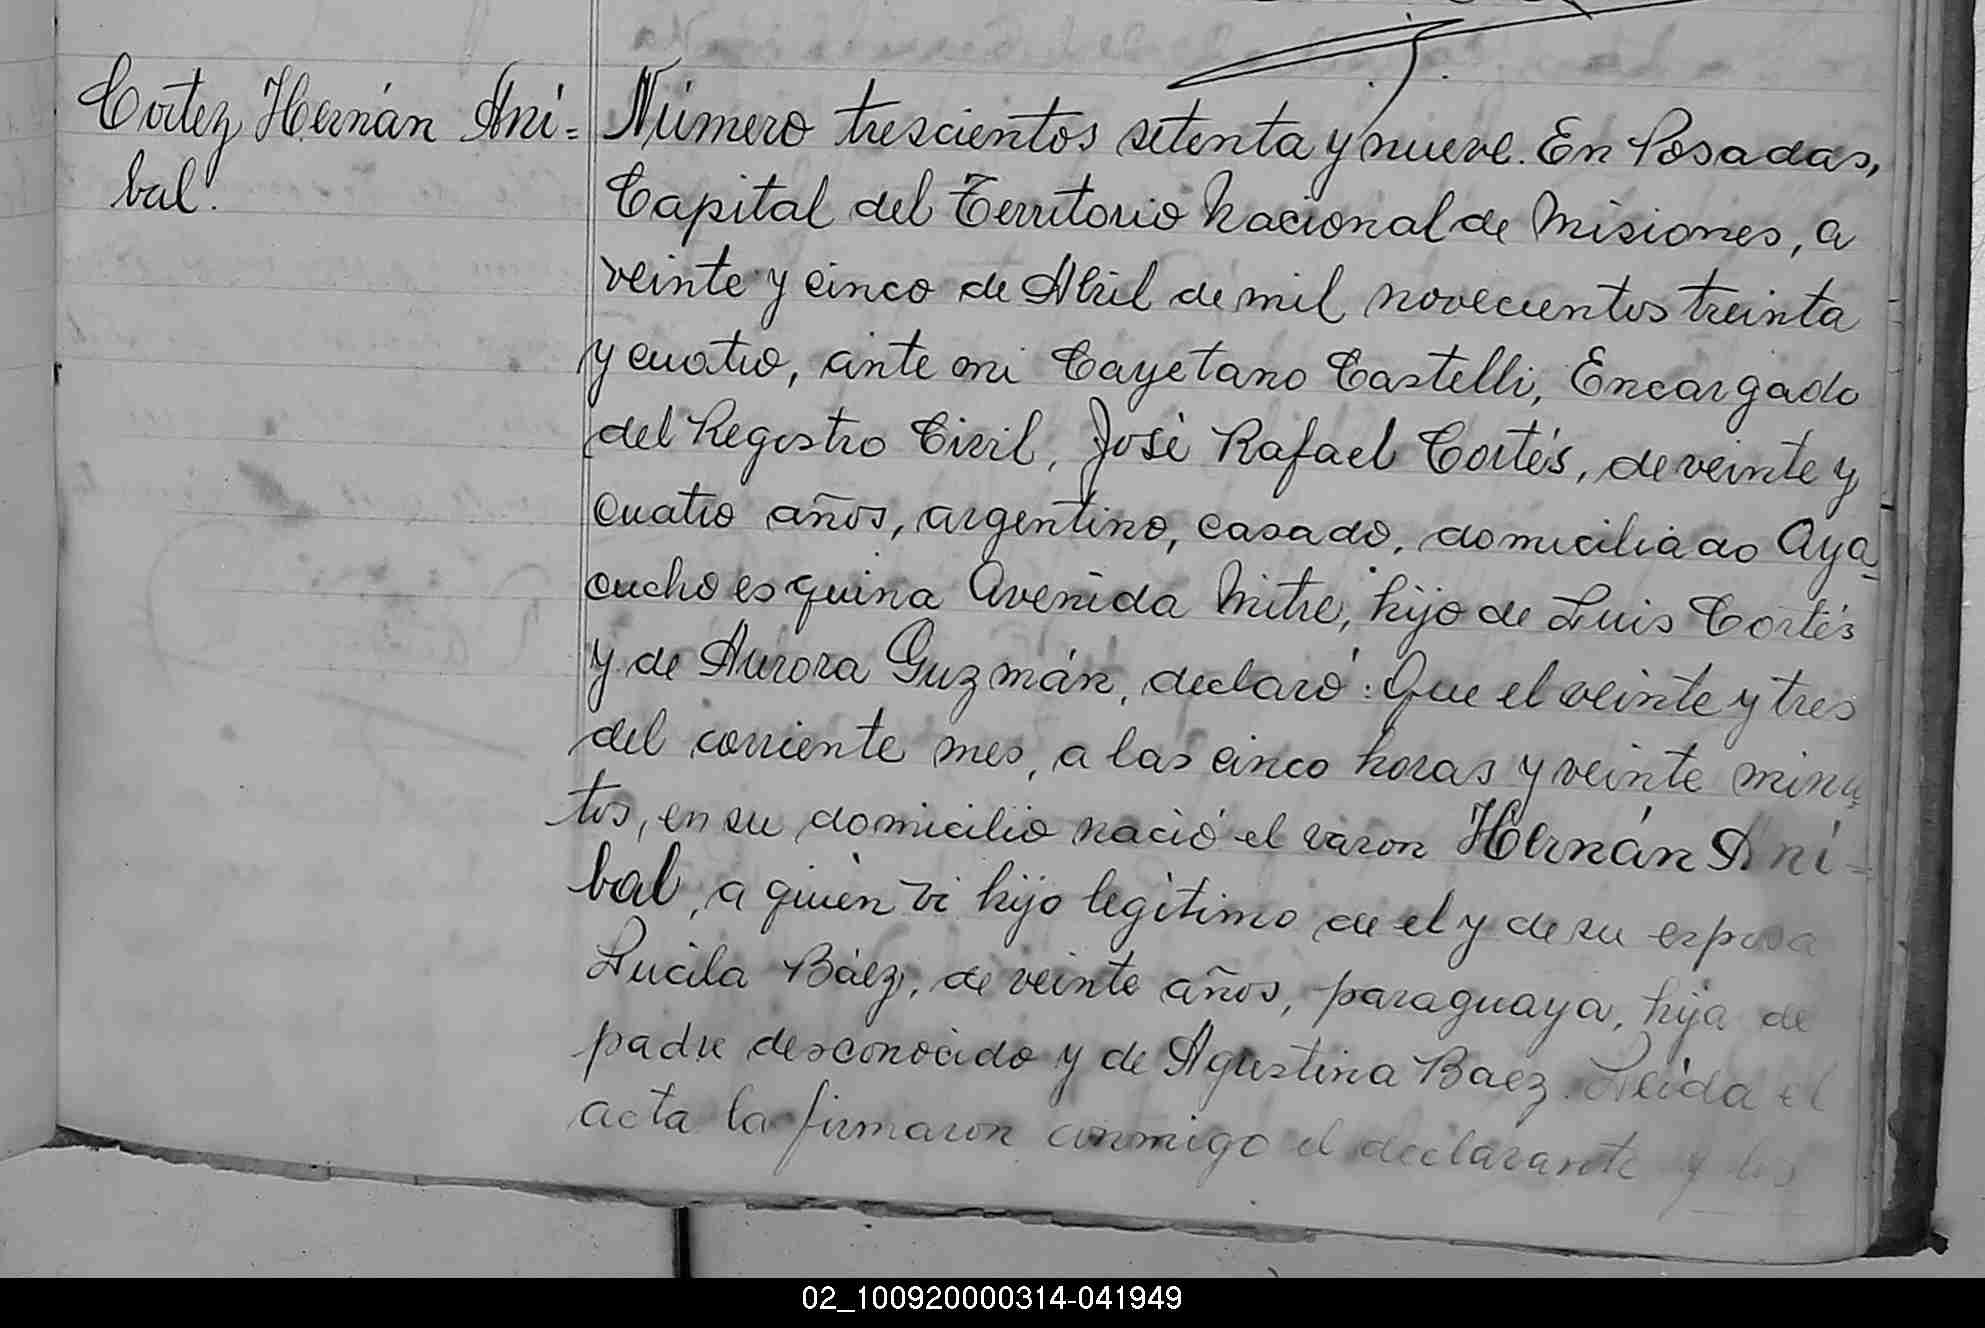 Cortez Hernán Aní=
bal.
Número trescientos setenta y nueve. En Posadas,
Capital del Territorio Nacional de Misiones, a
veinte y cinco de Abril de mil novecientos treinta
y cuatro, ante mi Cayetano Castelli, Encargado
del Registro Civil, José Rafael Cortés, de veinte y
cuatro años, argentino, casado, domiciliado Aya-
cucho esquina Avenida Mitre, hijo de Luis Cortés
y de Aurora Guzmán, declaró: Que el veinte y tres
del corriente mes, a las cinco horas y veinte minu-
tos, en su domicilio nació el varon Hernán Aní-
bal, a quien vi hijo legítimo de el y de su esposa
Lucila Báez, de veinte años, paraguaya, hija de
padre desconocido y de Agustina Baez. Leída el
acta la firmaron conmigo el declarante y los
02_100920000314-041949